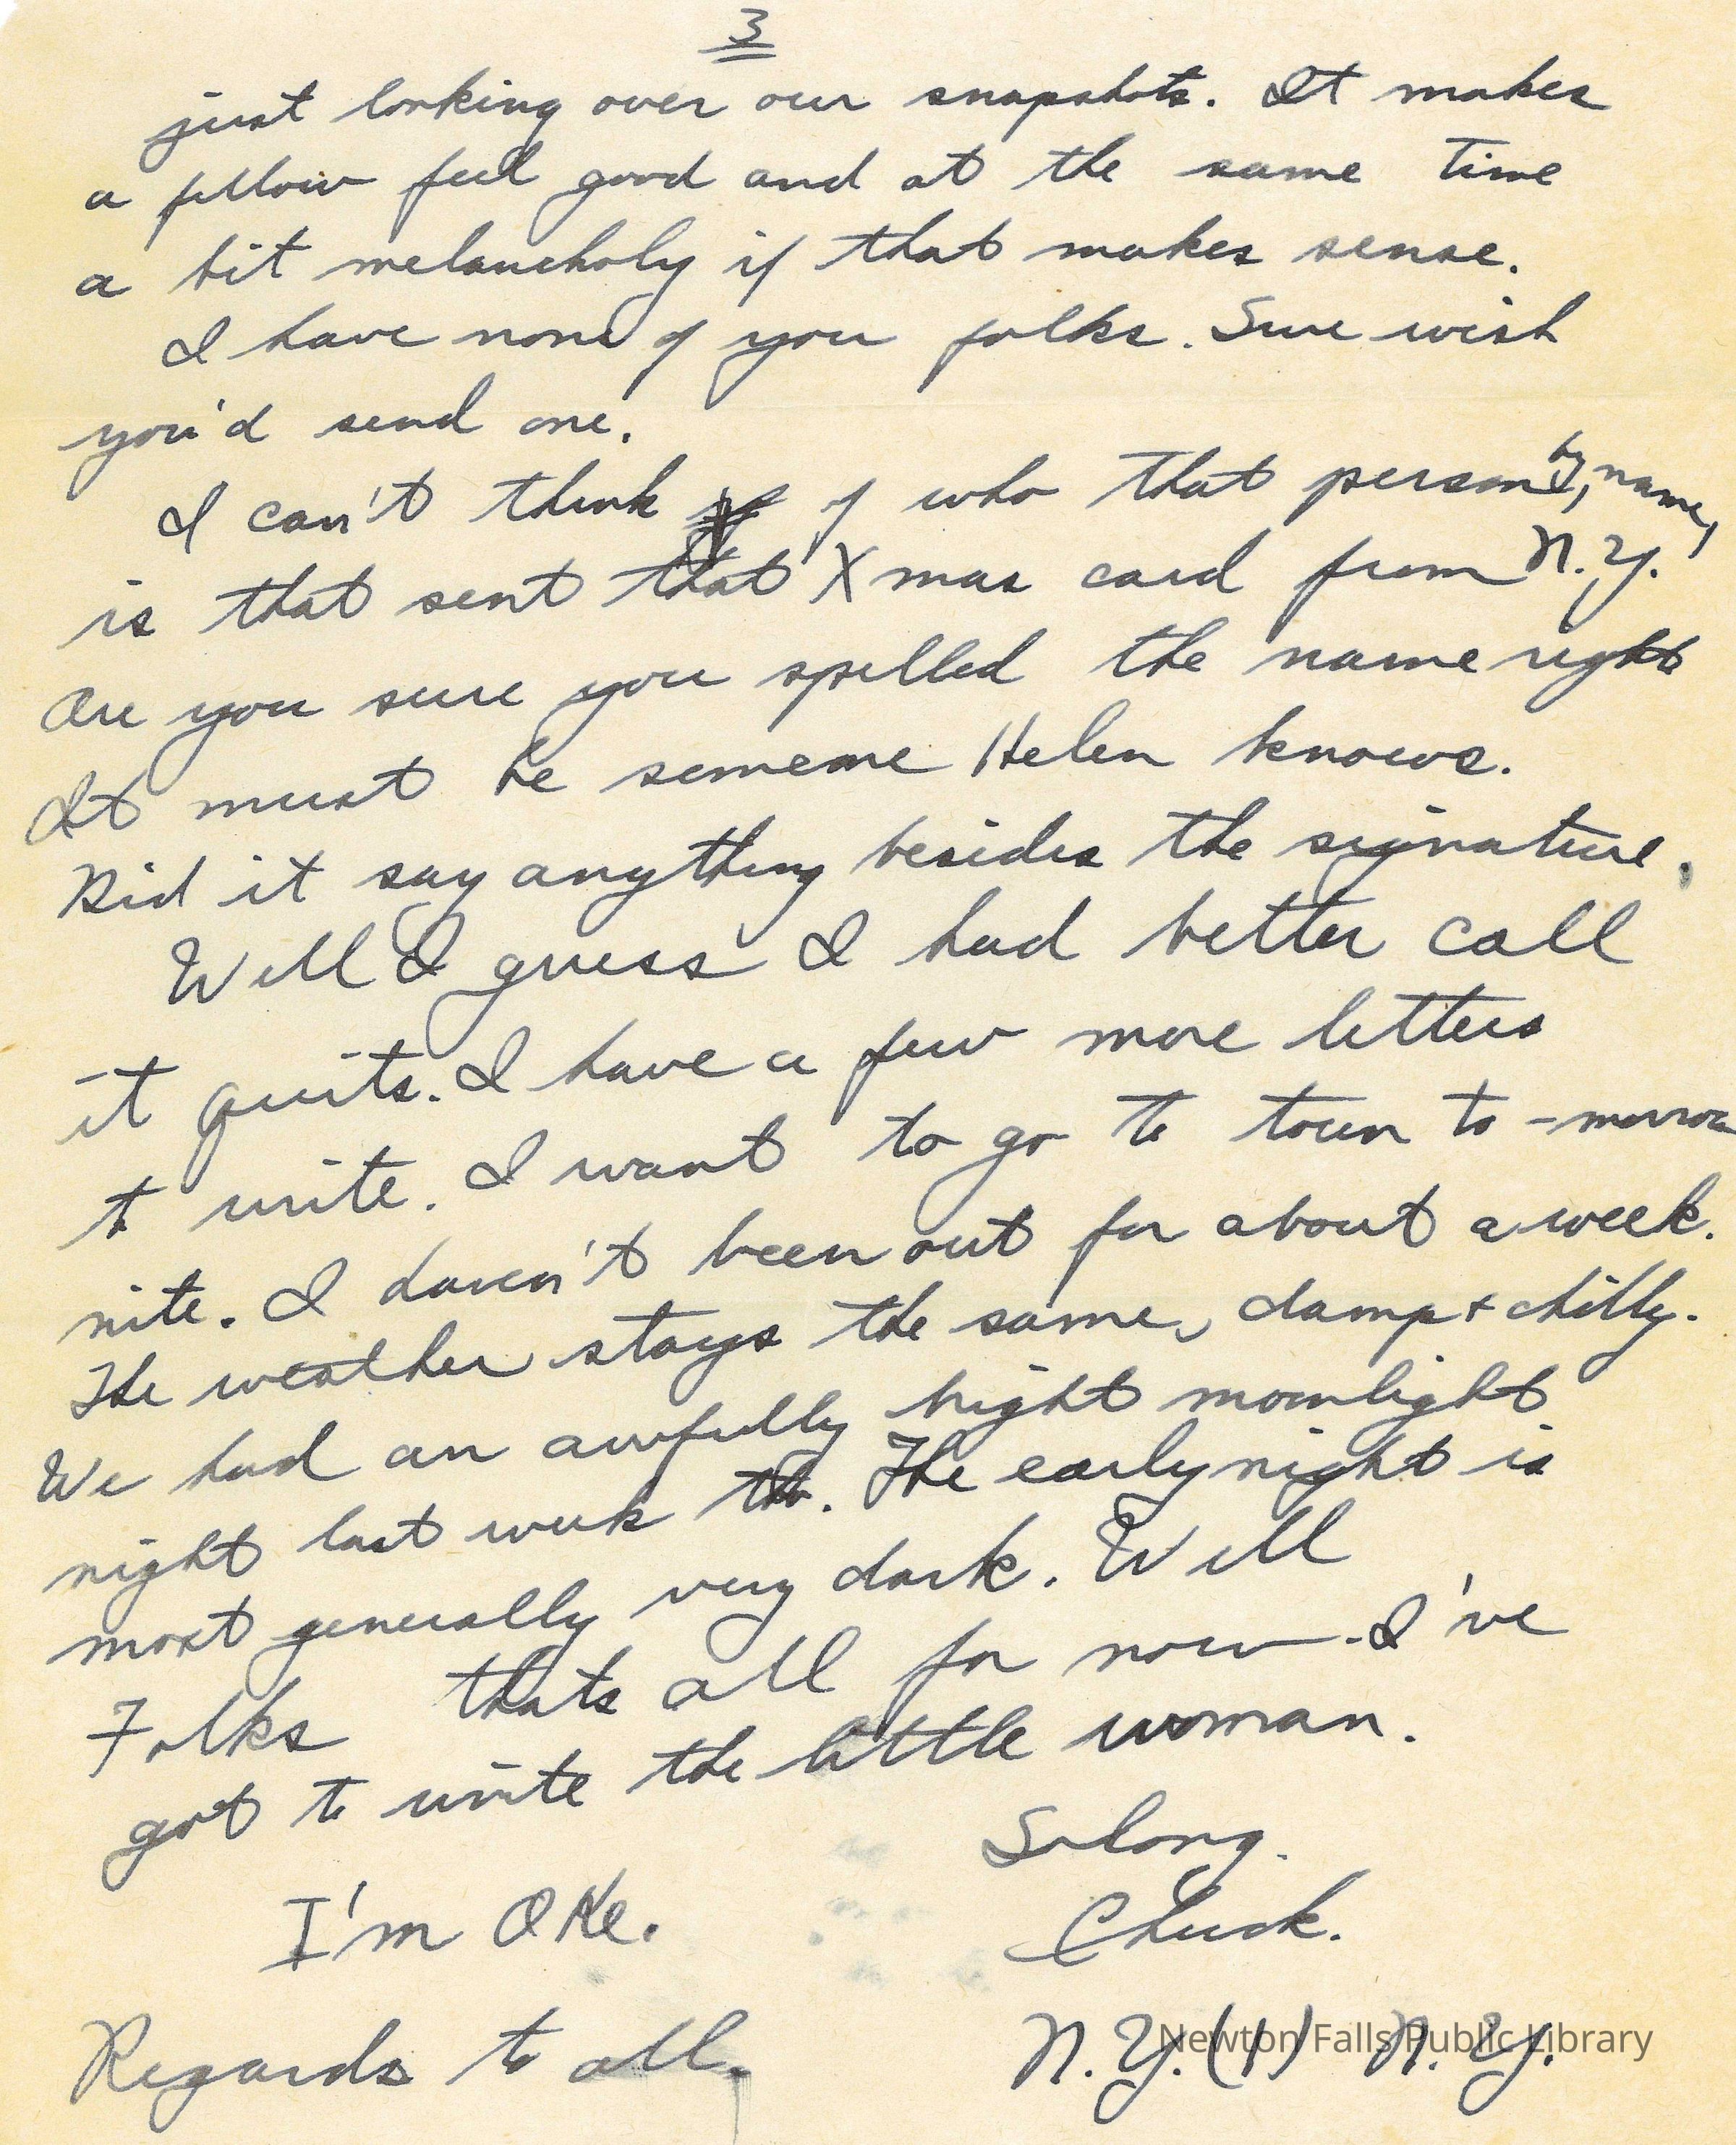 3
just looking over our snapshots. It makes
a fellow feel good and at the same time
a bit melancholy if that makes sense.
I have none of you folks. Sure wish
you'd send one.
I can't think of who that person, by name,
is that sent that Xmas card from N.Y.
Are you sure you spelled the name right
It must be someone Helen knows.
Did it say anything besides the signature.
Well I guess I had better call
it quits. I have a few more letters
to write. I want to go to town to-morrow
nite. I haven't been out for about a week.
The weather stays the same, damp + chilly.
We had an awfully bright moonlight
night last week tho. The early night is
most generally very dark. Well
Folks thats all for now. I've
got to write the little woman.
Solong.
I'm OKe.
Chuck.
Regards to all.
N.Y. (1) N.Y.
Newton Falls Public Library